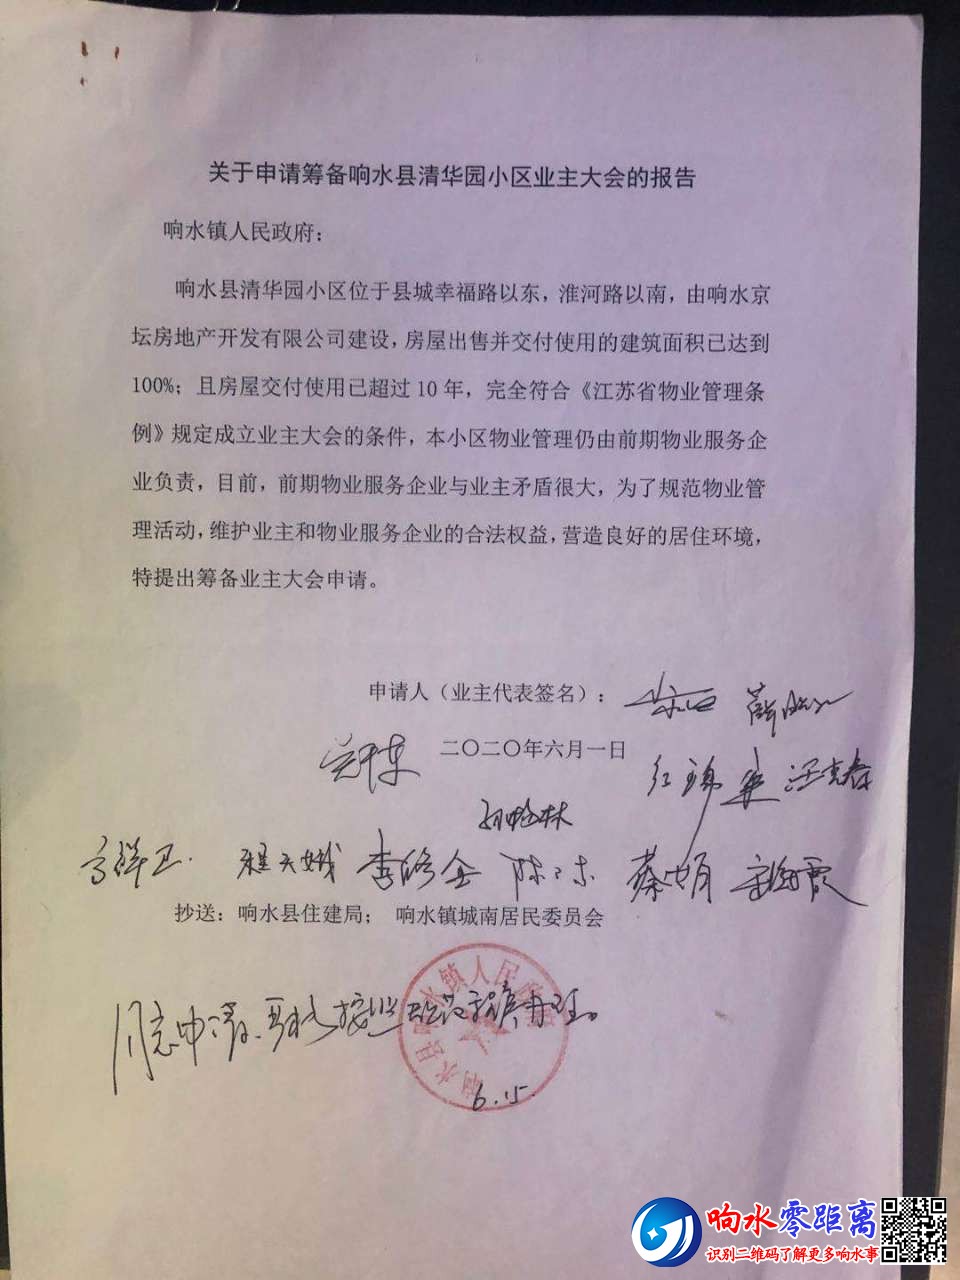 关于申请筹备响水县清华园小区业主大会的报告
响水镇人民政府：
响水县清华园小区位于县城幸福路以东，淮河路以南，由响水京
坛房地产开发有限公司建设，房屋出售并交付使用的建筑面积已达到
100%；且房屋交付使用已超过10年，完全符合《江苏省物业管理条
例》规定成立业主大会的条件，本小区物业管理仍由前期物业服务企
业负责，目前，前期物业服务企业与业主矛盾很大，为了规范物业管
理活动，维护业主和物业服务企业的合法权益，营造良好的居住环境，
特提出筹备业主大会申请。
申请人（业主代表签名）：
二〇二〇年六月一日
汪克春
李修金
抄送：响水县住建局； 响水镇城南居民委员会
响水县响水镇人民政府
同意申请
办理。
6.15.
响水零距离
识别二维码了解更多响水事